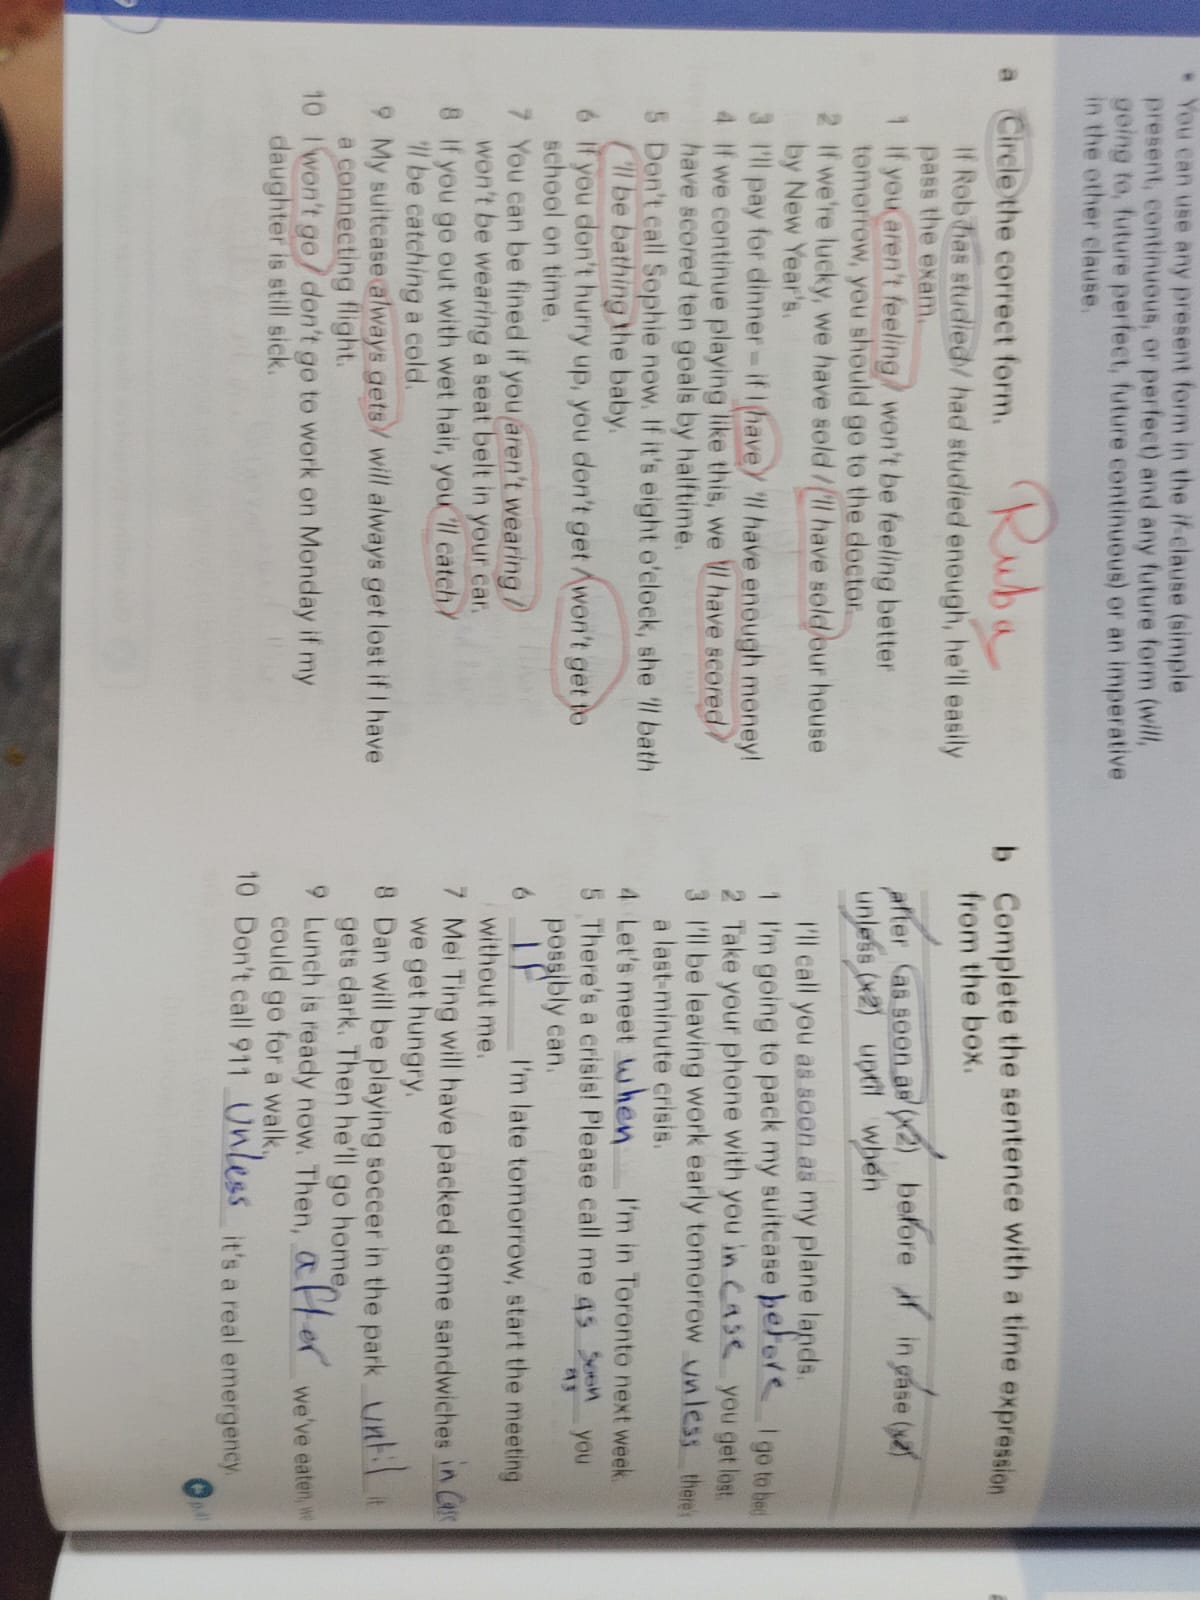 • You can use any present form in the if-clause (simple
present, continuous, or perfect) and any future form (will,
going to, future perfect, future continuous) or an imperative
in the other clause.
Ruba
a Circle the correct form.
If Rob has studied / had studied enough, he'll easily
pass the exam.
1 If you aren't feeling / won't be feeling better
tomorrow, you should go to the doctor.
2 If we're lucky, we have sold / 'll have sold our house
by New Year's.
3 I'll pay for dinner – if I have / 'll have enough money!
4 If we continue playing like this, we 'll have scored /
have scored ten goals by halftime.
5 Don't call Sophie now. If it's eight o'clock, she 'll bath
/ 'll be bathing the baby.
6 If you don't hurry up, you don't get / won't get to
school on time.
7 You can be fined if you aren't wearing /
won't be wearing a seat belt in your car.
8 If you go out with wet hair, you 'll catch /
'll be catching a cold.
9 My suitcase always gets / will always get lost if I have
a connecting flight.
10 I won't go / don't go to work on Monday if my
daughter is still sick.
b Complete the sentence with a time expression
from the box.
after as soon as (x2) before if in case (x2)
unless (x2) until when
I'll call you as soon as my plane lands.
1 I'm going to pack my suitcase before I go to bed
2 Take your phone with you in case you get lost.
3 I'll be leaving work early tomorrow unless there's
a last-minute crisis.
4 Let's meet when I'm in Toronto next week.
5 There's a crisis! Please call me as soon as you
possibly can.
6 If I'm late tomorrow, start the meeting
without me.
7 Mei Ting will have packed some sandwiches in case
we get hungry.
8 Dan will be playing soccer in the park until it
gets dark. Then he'll go home.
9 Lunch is ready now. Then, after we've eaten, we
could go for a walk.
10 Don't call 911 unless it's a real emergency.